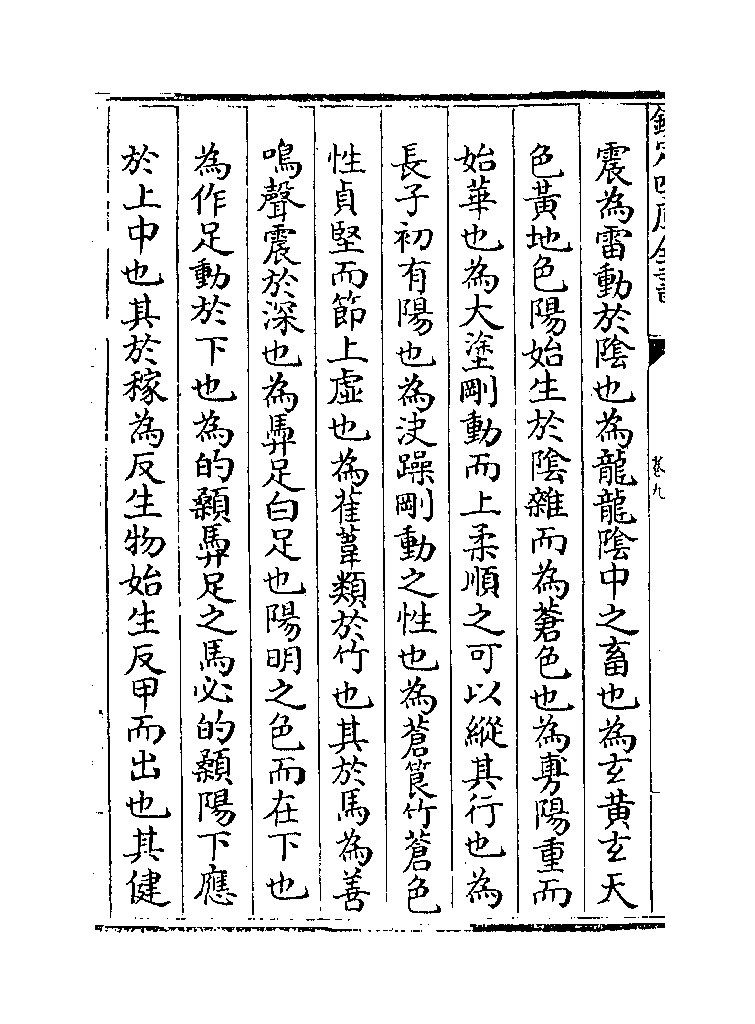 欽定四庫全書
卷九
震為雷動於陰也為龍龍陰中之畜也為玄黃玄天
色黃地色陽始生於陰雜而為蒼色也為旉陽重而
始華也為大塗剛動而上柔順之可以縱其行也為
長子初有陽也為決躁剛動之性也為蒼筤竹蒼色
性貞堅而節上虛也為萑葦類於竹也其於馬為善
鳴聲震於深也為馵足白足也陽明之色而在下也
為作足動於下也為的顙馵足之馬必的顙陽下應
於上中也其於稼為反生物始生反甲而出也其健